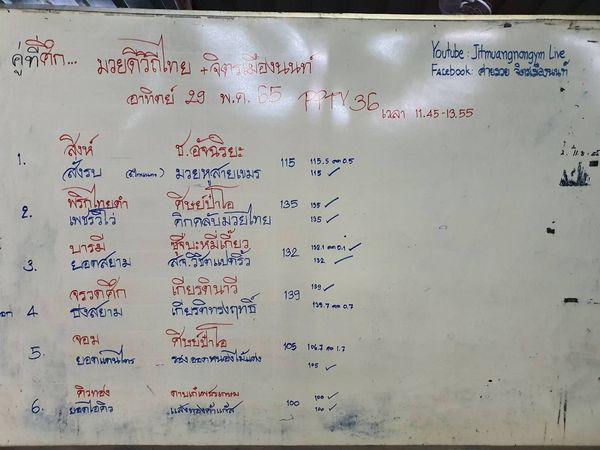 คู่ที่ศึก... มวยดีวิถีไทย + จิตรเมืองนนท์
Youtube: Jitmuangnongym Live
Facebook: ค่ายมวย จิตรเมืองนนท์
อาทิตย์ 29 พ.ค. 65 PPTV 36 เวลา 11.45-13.55
สิงห์ ช.อัจฉริยะ 115.5 ลด 0.5
1. สั่งรบ มวยหูสายเขมร 115 115 ✓
พริกไทยดำ ศิษย์ป๋าโอ 135 135 ✓
2. เพชรวิโว่ คิกคลับมวยไทย 135 ✓
บารมี ซุ้จุ๊บะหมี่เกี๊ยว 132 132.1 ลด 0.1 ✓
3. ยอดสยาม ส.จ.วิชิตแปดริ้ว 132 ✓
จรวดศึก เกียรตินาวี 139 139 ✓
4 ธงสยาม เกียรติทรงฤทธิ์ 139.7 ลด 0.7
จอม ศิษย์ป๋าโอ 105 106.7 ลด 1.7
5. ยอดแดนไตร รุ่งอดหนองไม้แก่ง 105 ✓
คิวทอง 100 ✓
6. ยอดไอคิว 100 100 ✓